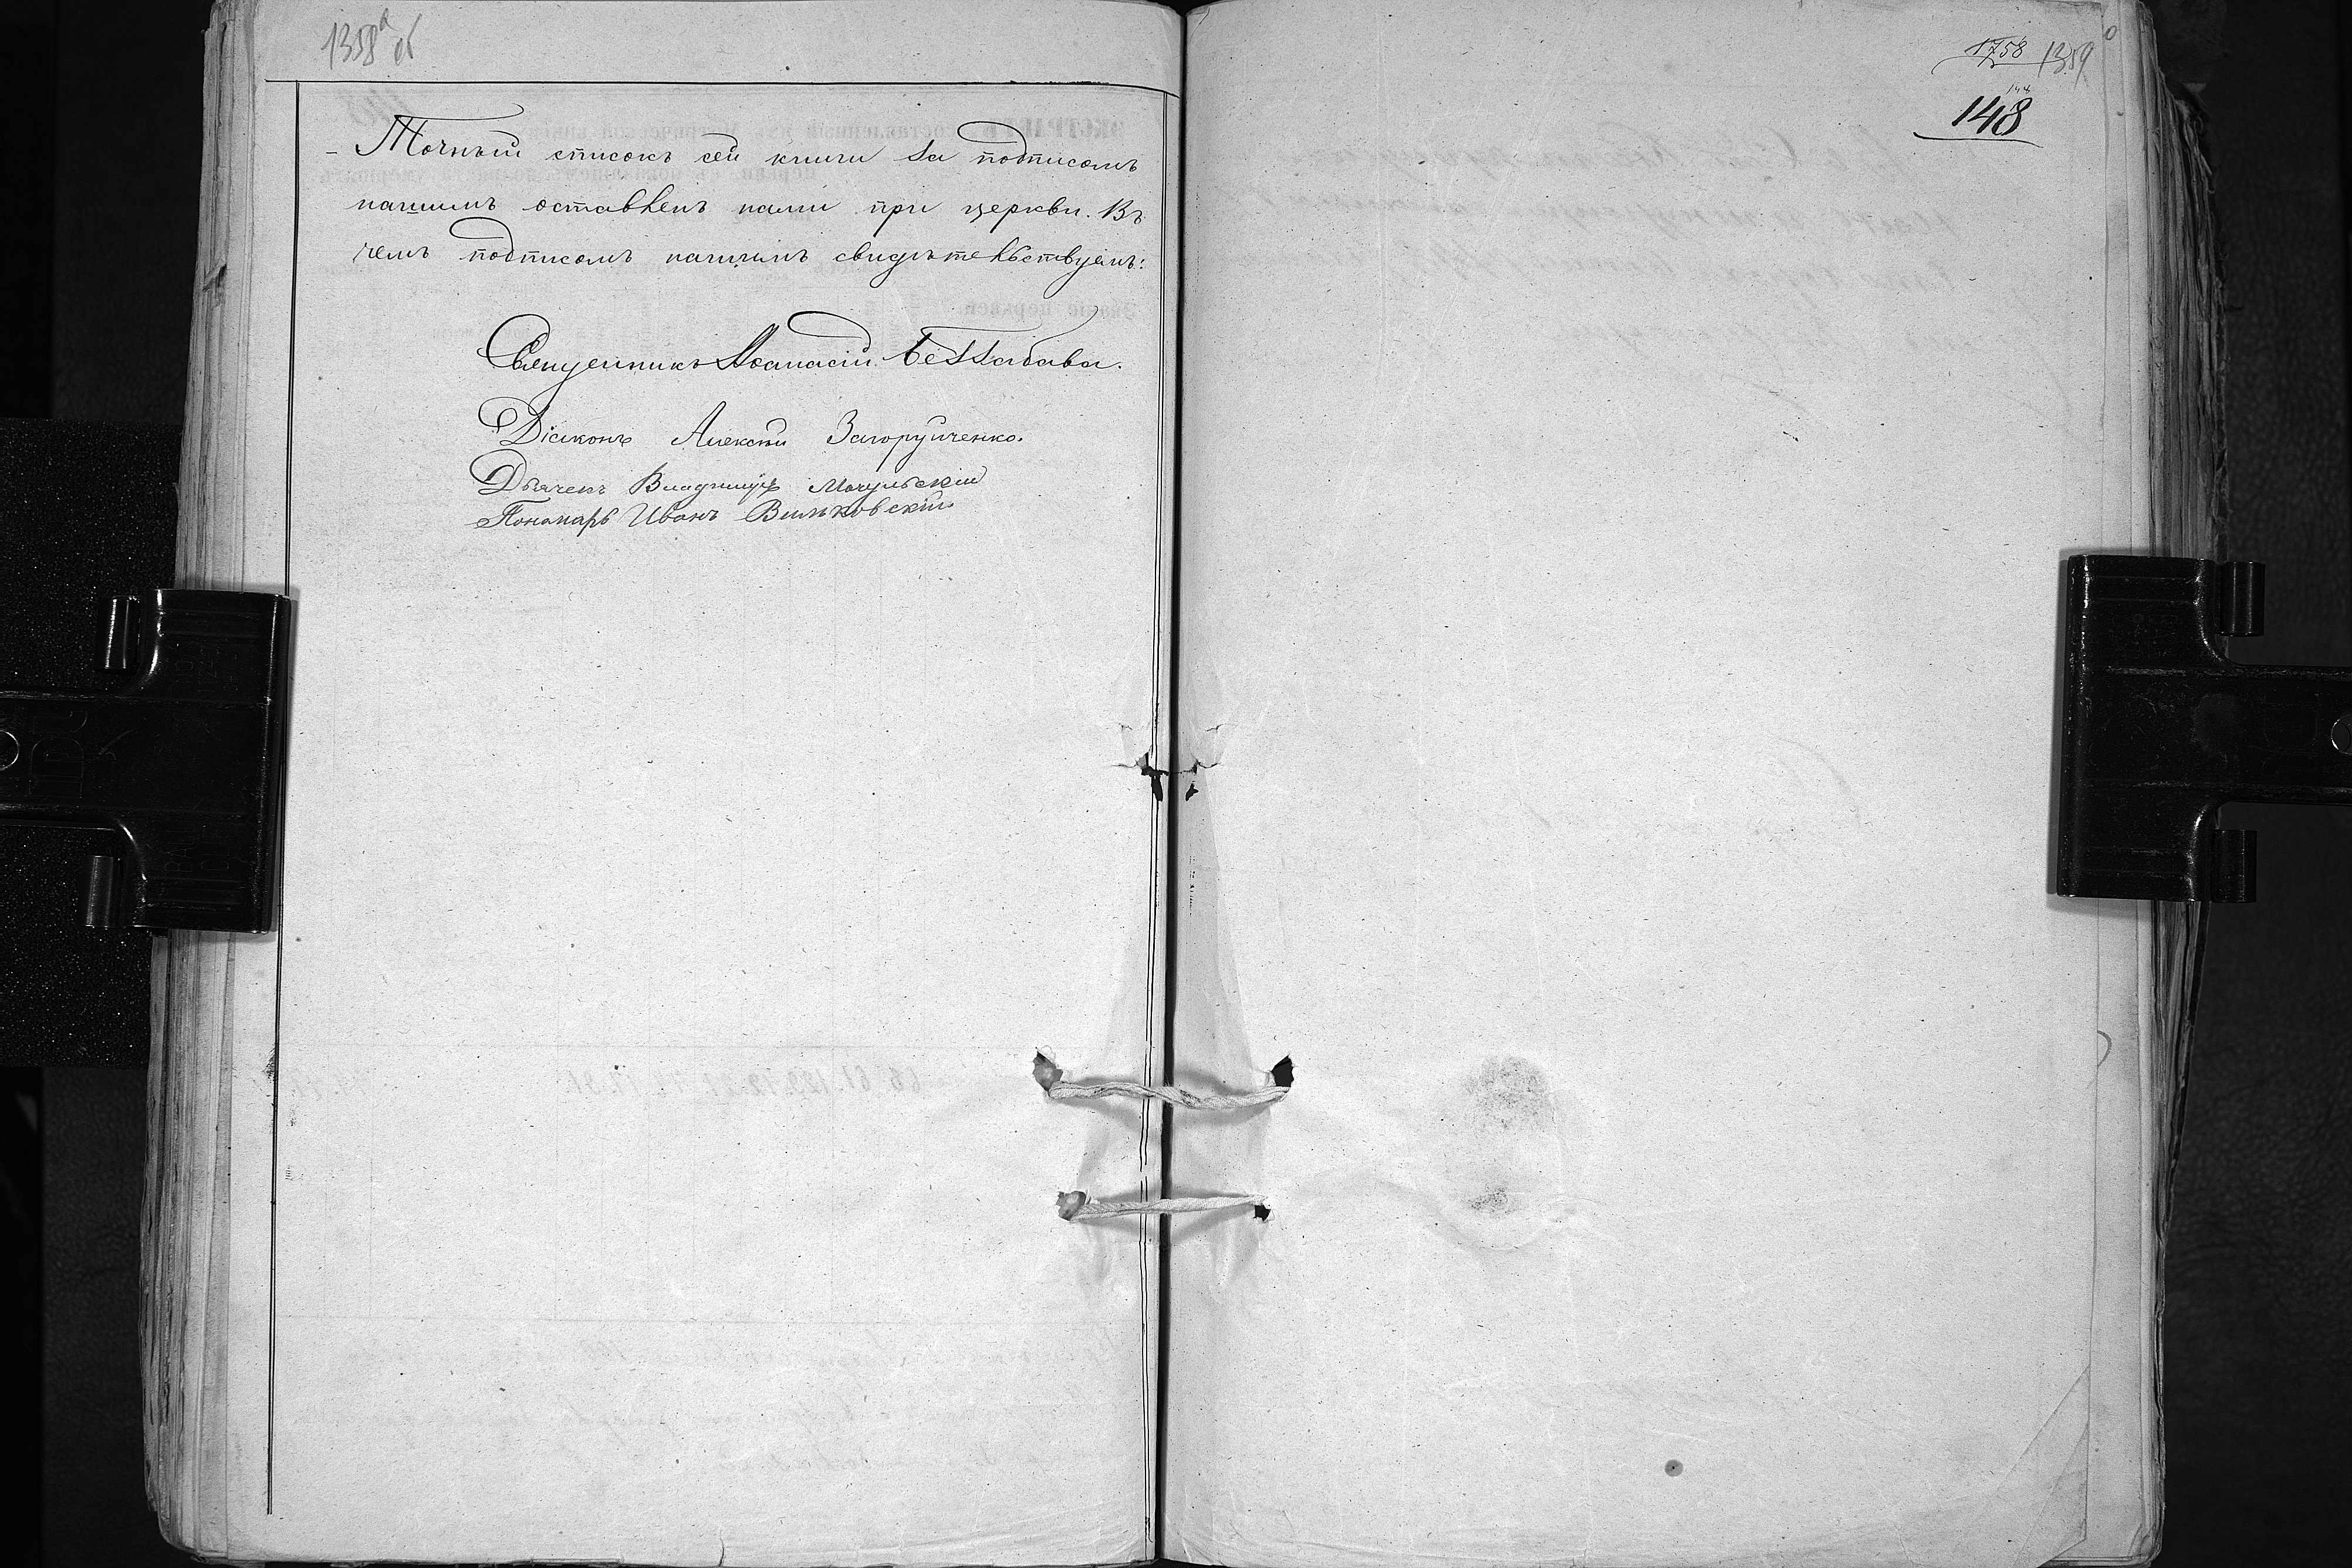 1358а об
Точный список сей книги за подписомъ
нашимъ оставленъ нами при церкви. Въ
чемъ подписомъ нашимъ свидѣтельствуемъ:
Священникъ Аѳанасій Беззабава.
Діаконъ Алексѣй Загоруйченко.
Дьячекъ Владиміръ Мочульскій
Пономарь Иванъ Вильковскій
1758 1359
144
148